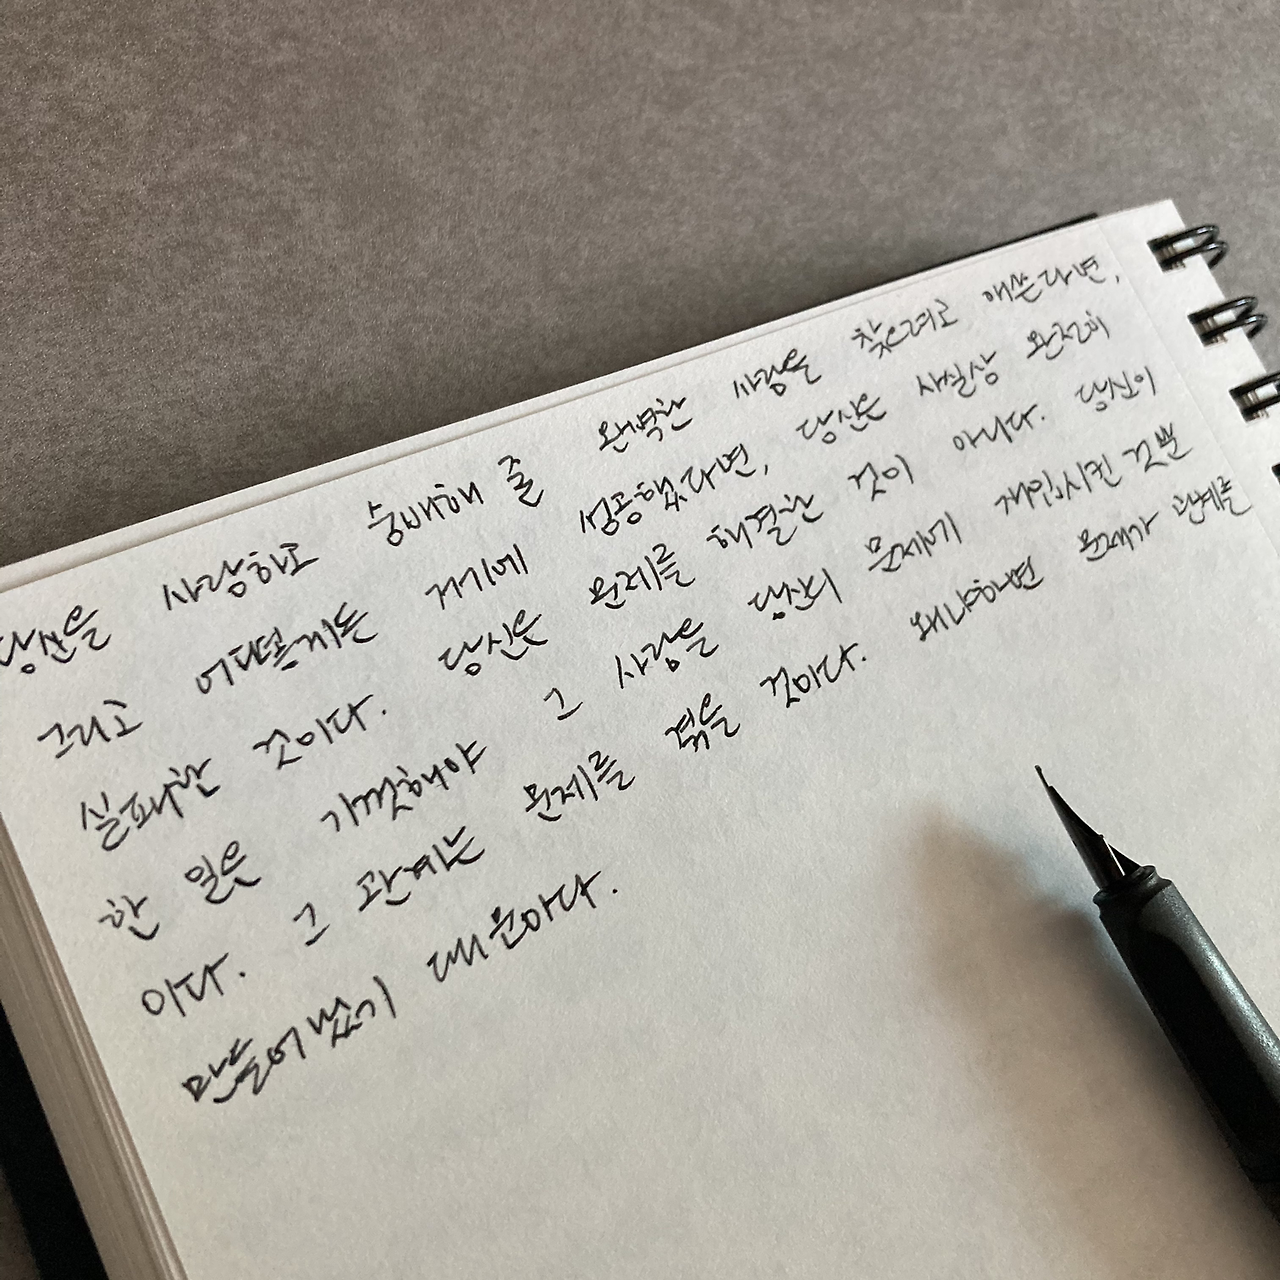 당신을 사랑하고 숭배해 줄 완벽한 사람을 찾으려고 애쓴다면,
그리고 어떠헣게든 거기에 성공했다면, 당신은 사실상 완전히
실패한 것이다. 당신은 문제를 해결한 것이 아니다. 당신이
한 일은 기껏해야 그 사람을 당신의 문제에 개입시킨 것뿐
이다. 그 관계는 문제를 겪을 것이다. 왜냐하면 문제가 관계를
만들어냈기 때문이다.